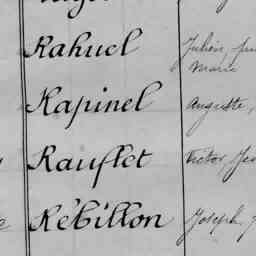 Rahuel Julien,
Marie
Rapinel Auguste,
Rauflet Victor,
Rébillon Joseph,